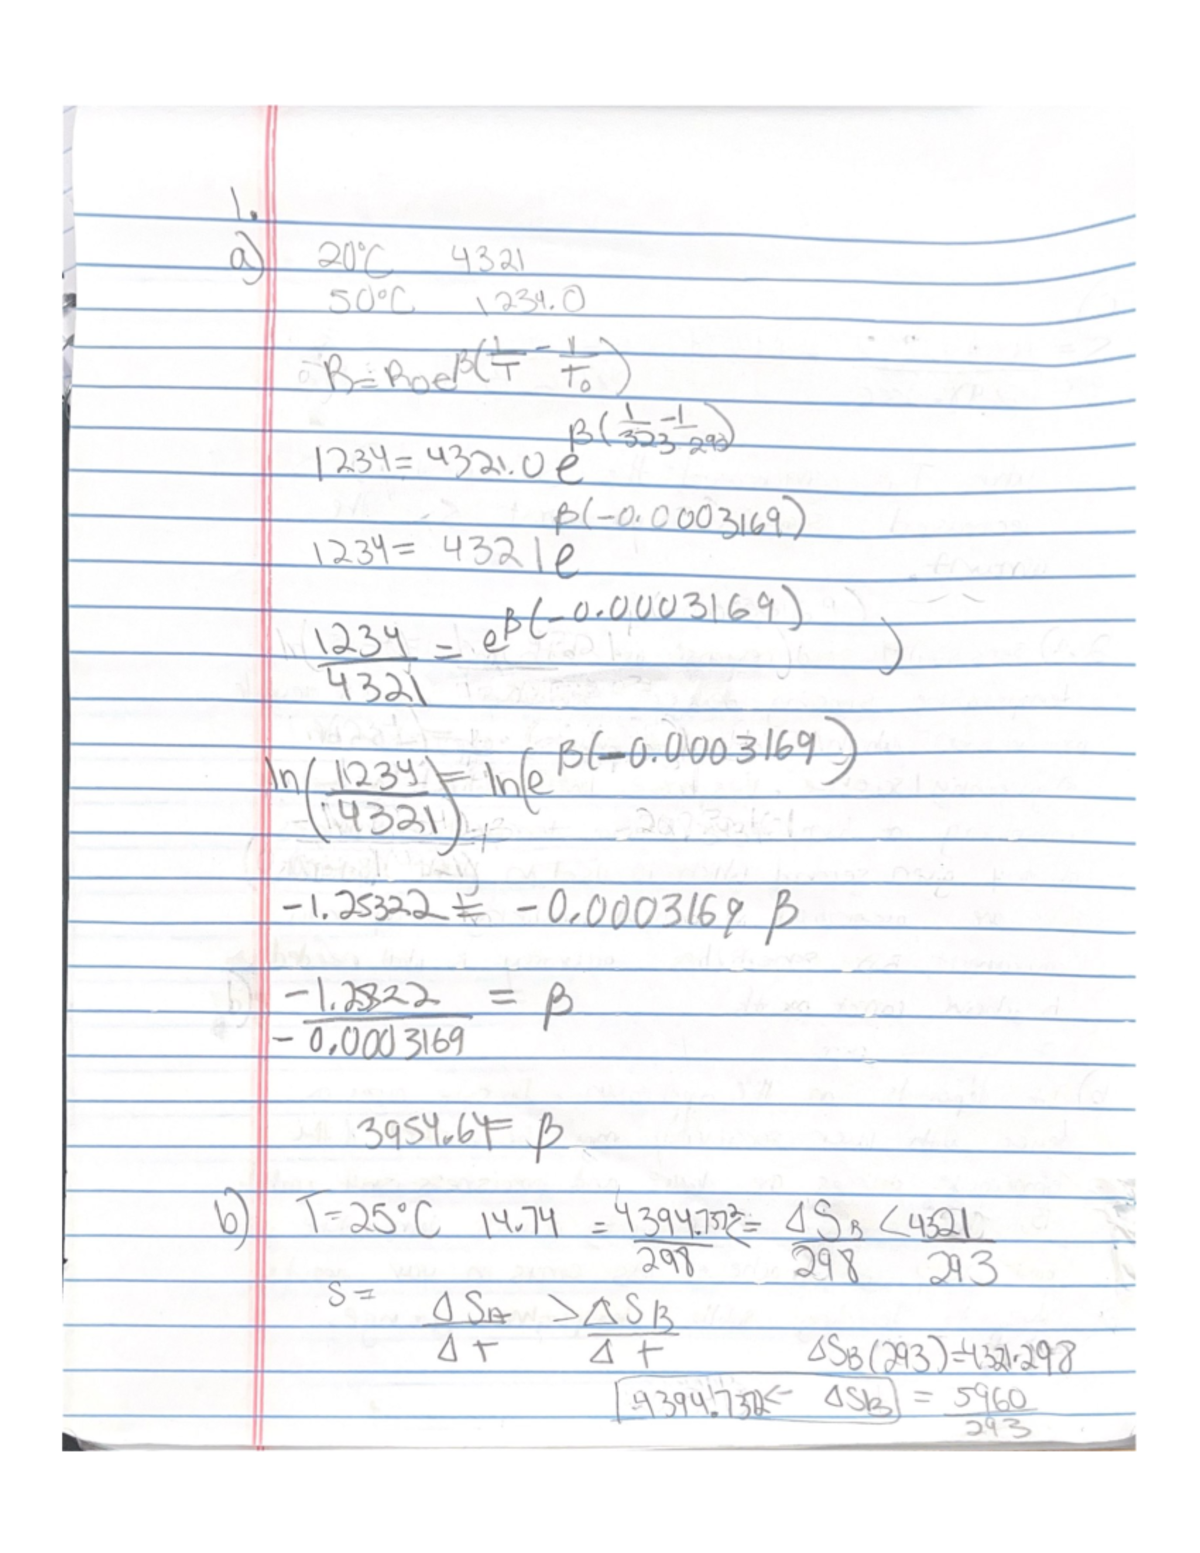 1.
a) 20°C 4321
50°C 1234.0
R = R0e^β(1/T - 1/T₀)
1234 = 4321.0 e^β(1/323 - 1/293)
1234 = 4321e^β(-0.0003169)
1234/4321 = e^β(-0.0003169)
ln(1234/4321) = ln(e^β(-0.0003169))
-1.25322 = -0.0003169 β
-1.25322/-0.0003169 = β
3954.64 = β
b) T=25°C 14.74 = 4394.737/298 = ΔSB/298 < 4321/293
S = ΔSA/Δt > ΔSB/Δt
ΔSB(293)=4321·298
4394.737 < ΔSB = 5960/293